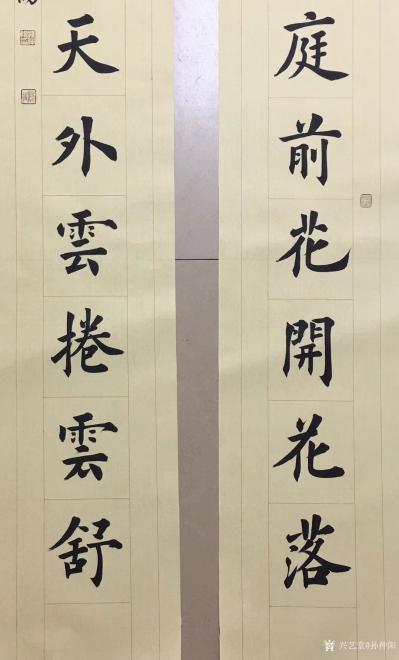 庭前花開花落
天外雲捲雲舒
兴艺堂@孙仲阳